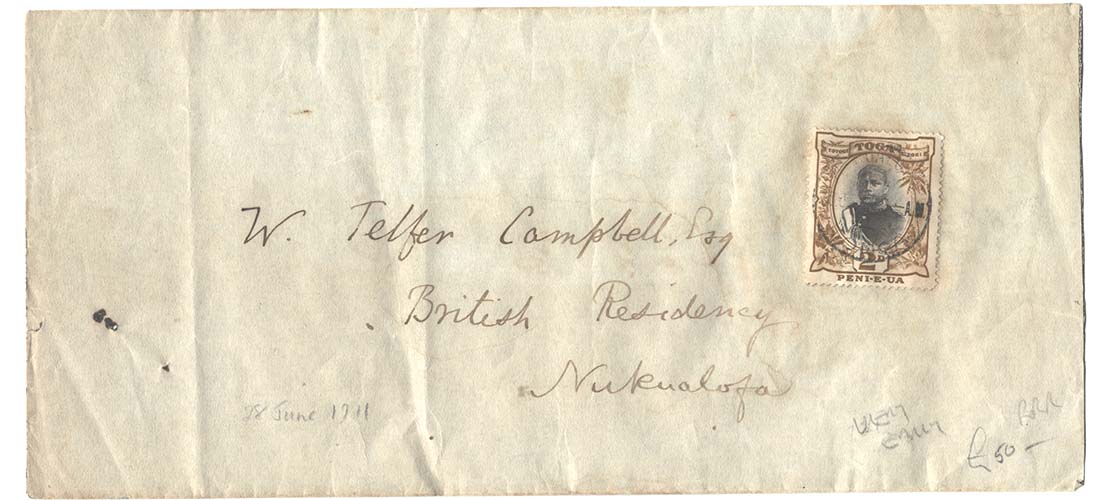 TOGA
A.M
2
PENI-E-UA
W. Telfer Campbell, Esq
British Residency
Nukualofa
28 June 1911
£50-